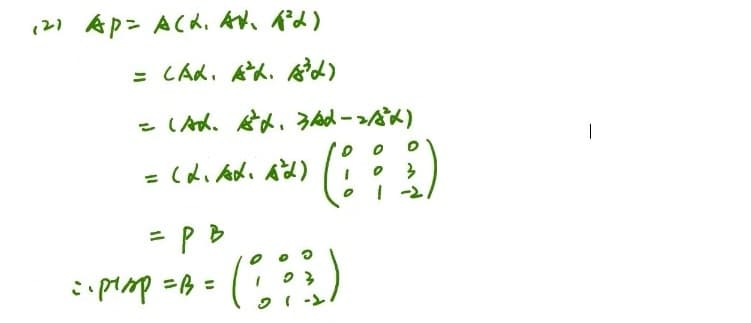 (2) AP = A(α, Aα, A²α)
= (Aα, A²α, A³α)
= (Aα, A²α, 3Aα-2A²α)
= (α, Aα, A²α) (0 0 0
1 0 3
0 1 -2)
= P B
∴ P⁻¹AP = B = (0 0 0
1 0 3
0 1 -2)